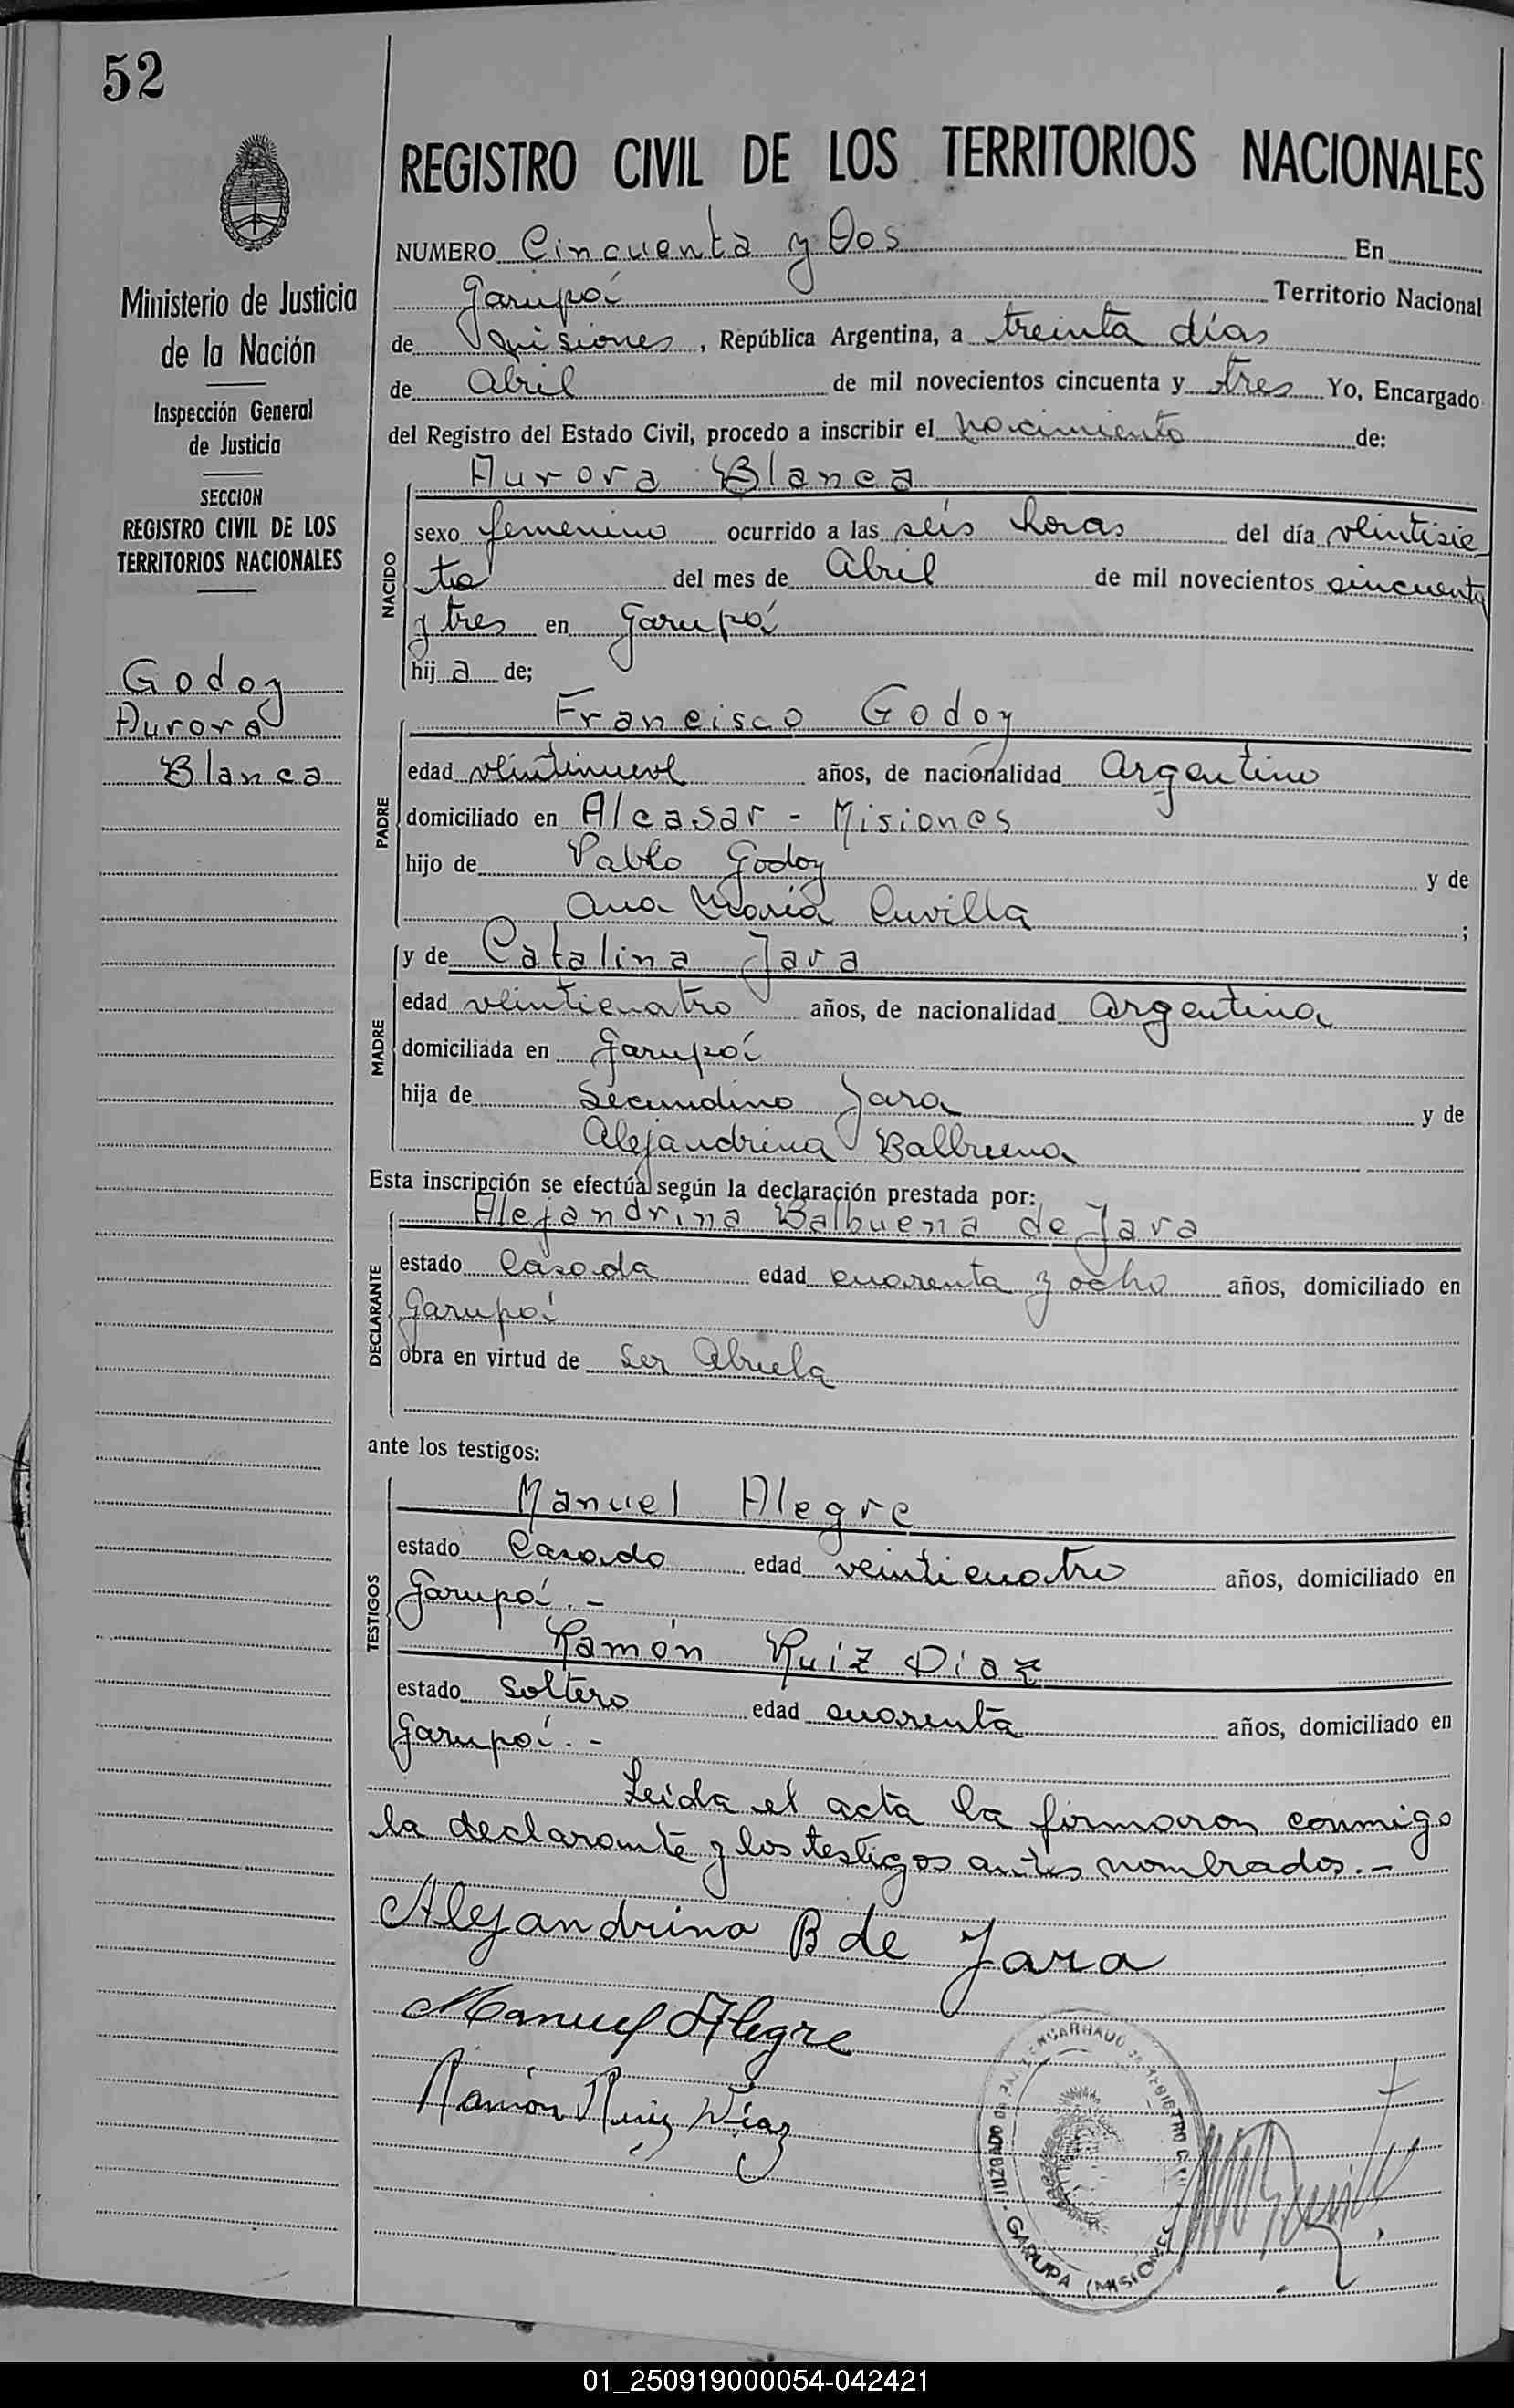 52
REGISTRO CIVIL DE LOS TERRITORIOS NACIONALES
Ministerio de Justicia
de la Nación
Inspección General
de Justicia
SECCION
REGISTRO CIVIL DE LOS
TERRITORIOS NACIONALES
Godoy
Aurora
Blanca
NUMERO Cincuenta y Dos En
Garupá Territorio Nacional
de Misiones, República Argentina, a treinta días
de Abril de mil novecientos cincuenta y tres Yo, Encargado
del Registro del Estado Civil, procedo a inscribir el nacimiento de:
NACIDO
Aurora Blanca
sexo femenino ocurrido a las seis horas del día veintisie
te del mes de Abril de mil novecientos cincuenta
y tres en Garupá
hij a de;
PADRE
Francisco Godoy
edad veintinueve años, de nacionalidad Argentino
domiciliado en Alcasar - Misiones
hijo de Pablo Godoy y de
Ana María Cuvilla ;
MADRE
y de Catalina Jara
edad veinticuatro años, de nacionalidad Argentina
domiciliada en Garupá
hija de Secundino Jara y de
Alejandrina Balbuena
Esta inscripción se efectúa según la declaración prestada por:
DECLARANTE
Alejandrina Balbuena de Jara
estado Casada edad cuarenta y ocho años, domiciliado en
Garupá
obra en virtud de ser Abuela
ante los testigos:
TESTIGOS
Manuel Alegre
estado Casado edad veinticuatro años, domiciliado en
Garupá.-
Ramón Ruíz Díaz
estado soltero edad cuarenta años, domiciliado en
Garupá.-
Leida el acta la firmaron conmigo
la declarante y los testigos antes nombrados.-
Alejandrina B de Jara
Manuel Alegre
Ramón Ruiz Díaz
JUZGADO DE PAZ ENCARGADO DE REGISTRO
GARUPA (MISIONES)
01_250919000054-042421